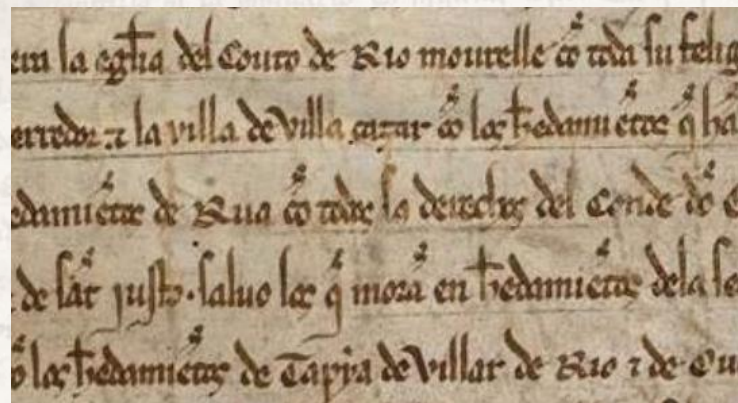 la eglia del Couto de Rio mourelle cō toda su felig
erredor ⁊ la villa de Villa cazar cō los hedamiētos q̄ hā
edamiētos de Rua cō todos los derechos del Conde dō
de sāt justo. saluo los q̄ morā en hedamiētos dela se
los hedamiētos de Tapia de Villar de Rio ⁊ de Ou